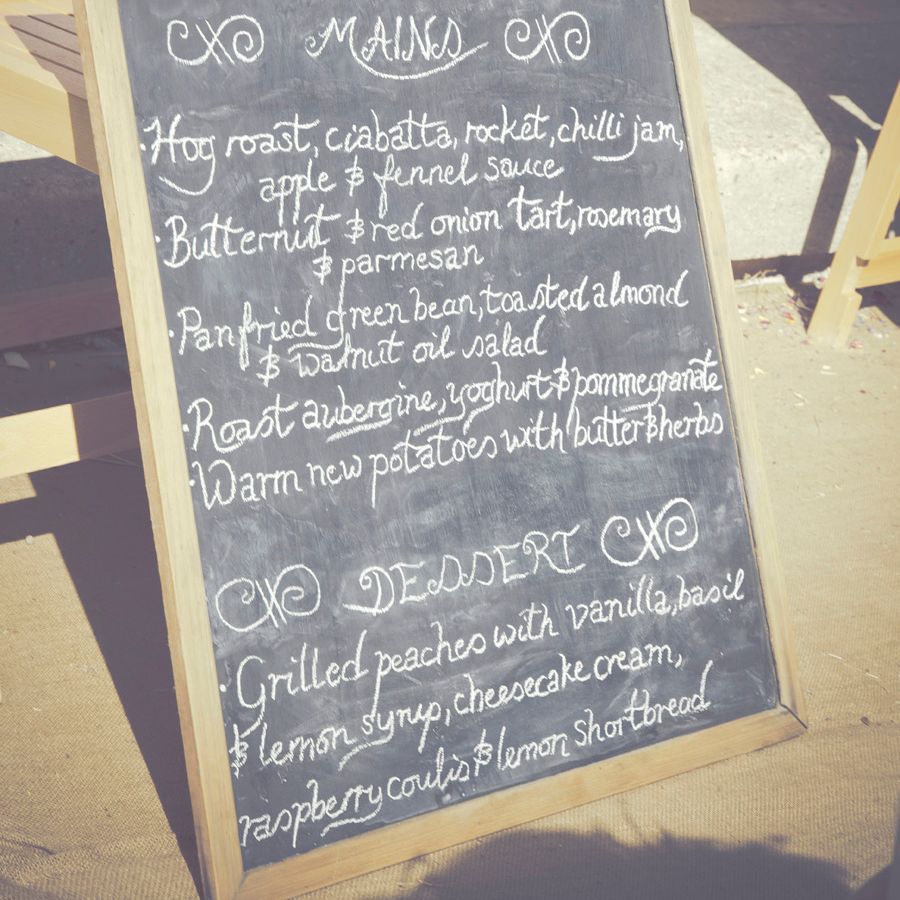 MAINS
· Hog roast, ciabatta, rocket, chilli jam,
apple & fennel sauce
· Butternut & red onion tart, rosemary
& parmesan
· Pan fried green bean, toasted almond
& walnut oil salad
· Roast aubergine, yoghurt & pommegranate
· Warm new potatoes with butter & herbs
DESSERT
· Grilled peaches with vanilla, basil
& lemon syrup, cheesecake cream,
raspberry coulis & lemon shortbread